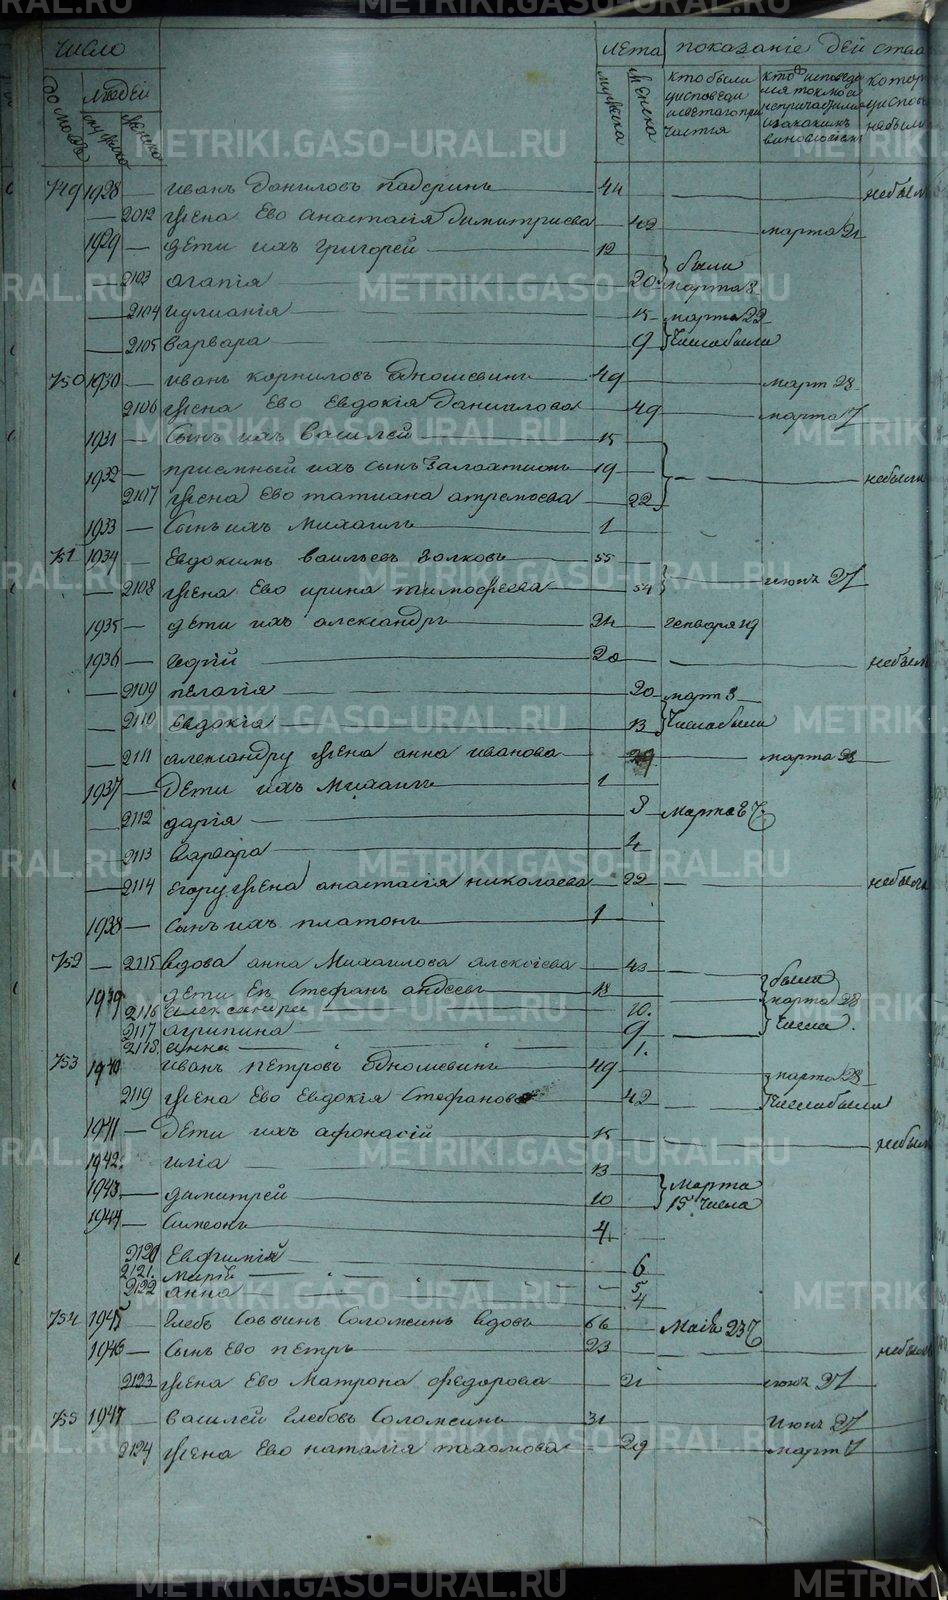 число лета показание действа
домовъ людей мужска женска кто были у исповеди и святаго причастия
749 1928 — Иванъ Даниловъ Падеринъ 44 небыли
2012 жена Ево анастасiя Димитриева 42 марта 21
1929 — дети ихъ Григорей 12
2103 агапiя 20 были марта 8
2104 иулианiя 15 марта 22
2105 варвара 9 Числа были
750 1930 — иванъ корниловъ 49 март 28
2106 жена Ево Евдокiя Данилова 49 марта 17
1931 — Сынъ ихъ василей 15
1932 — приемный ихъ сынъ 19 небыли
2107 жена Ево татиана 22
1933 — Сынъ ихъ михаилъ 1
751 1934 — Евдокимъ васильевъ волковъ 55
2108 жена Ево ирина тимофеева 54 июнь 27
1935 — дети ихъ александръ 24 генваря 19
1936 — 20 небыли
2109 пелагiя 20 март 8
2110 Евдокiя 13 Числа были
2111 александру жена анна иванова 29 марта 28
1937 — Дети ихъ Михаилъ 1
2112 дарiя 8 Марта 8 Ч.
2113 варвара 4
2114 егору жена анастасiя николаева 22 небыли
1938 — Сынъ ихъ платонъ 1
752 — 2115 вдова анна Михаилова алексеева 43 были
1939 дети Еи Стефанъ андеевъ 18 марта 28
2116 александра 10. Числа.
2117 агрипина 9
2118. анна 1.
753 1940 иванъ Петровъ 49 марта 28
2119 жена Ево Евдокiя Стефанова 42 Числа были
1941 — Дети ихъ афонасiй 15 небыли
1942. илiа 13 Марта
1943. — димитрей 10 15 Числа
1944 — Симеонъ 4
2120 Евфимiя 6
2121. марiя 5
2122 анна 4
754 1945 — Глебъ Саввинъ Соломеинъ вдовъ 66 Маiя 23 Ч
1946 — Сынъ ево петръ 23 небыли
2123 жена Ево Матрона федорова 21 июнь 27
755 1947 — василей Глебовъ Соломеинъ 31 Июнь 27
2124 жена Ево наталiя пахомова 29 март 7
METRIKI.GASO-URAL.RU